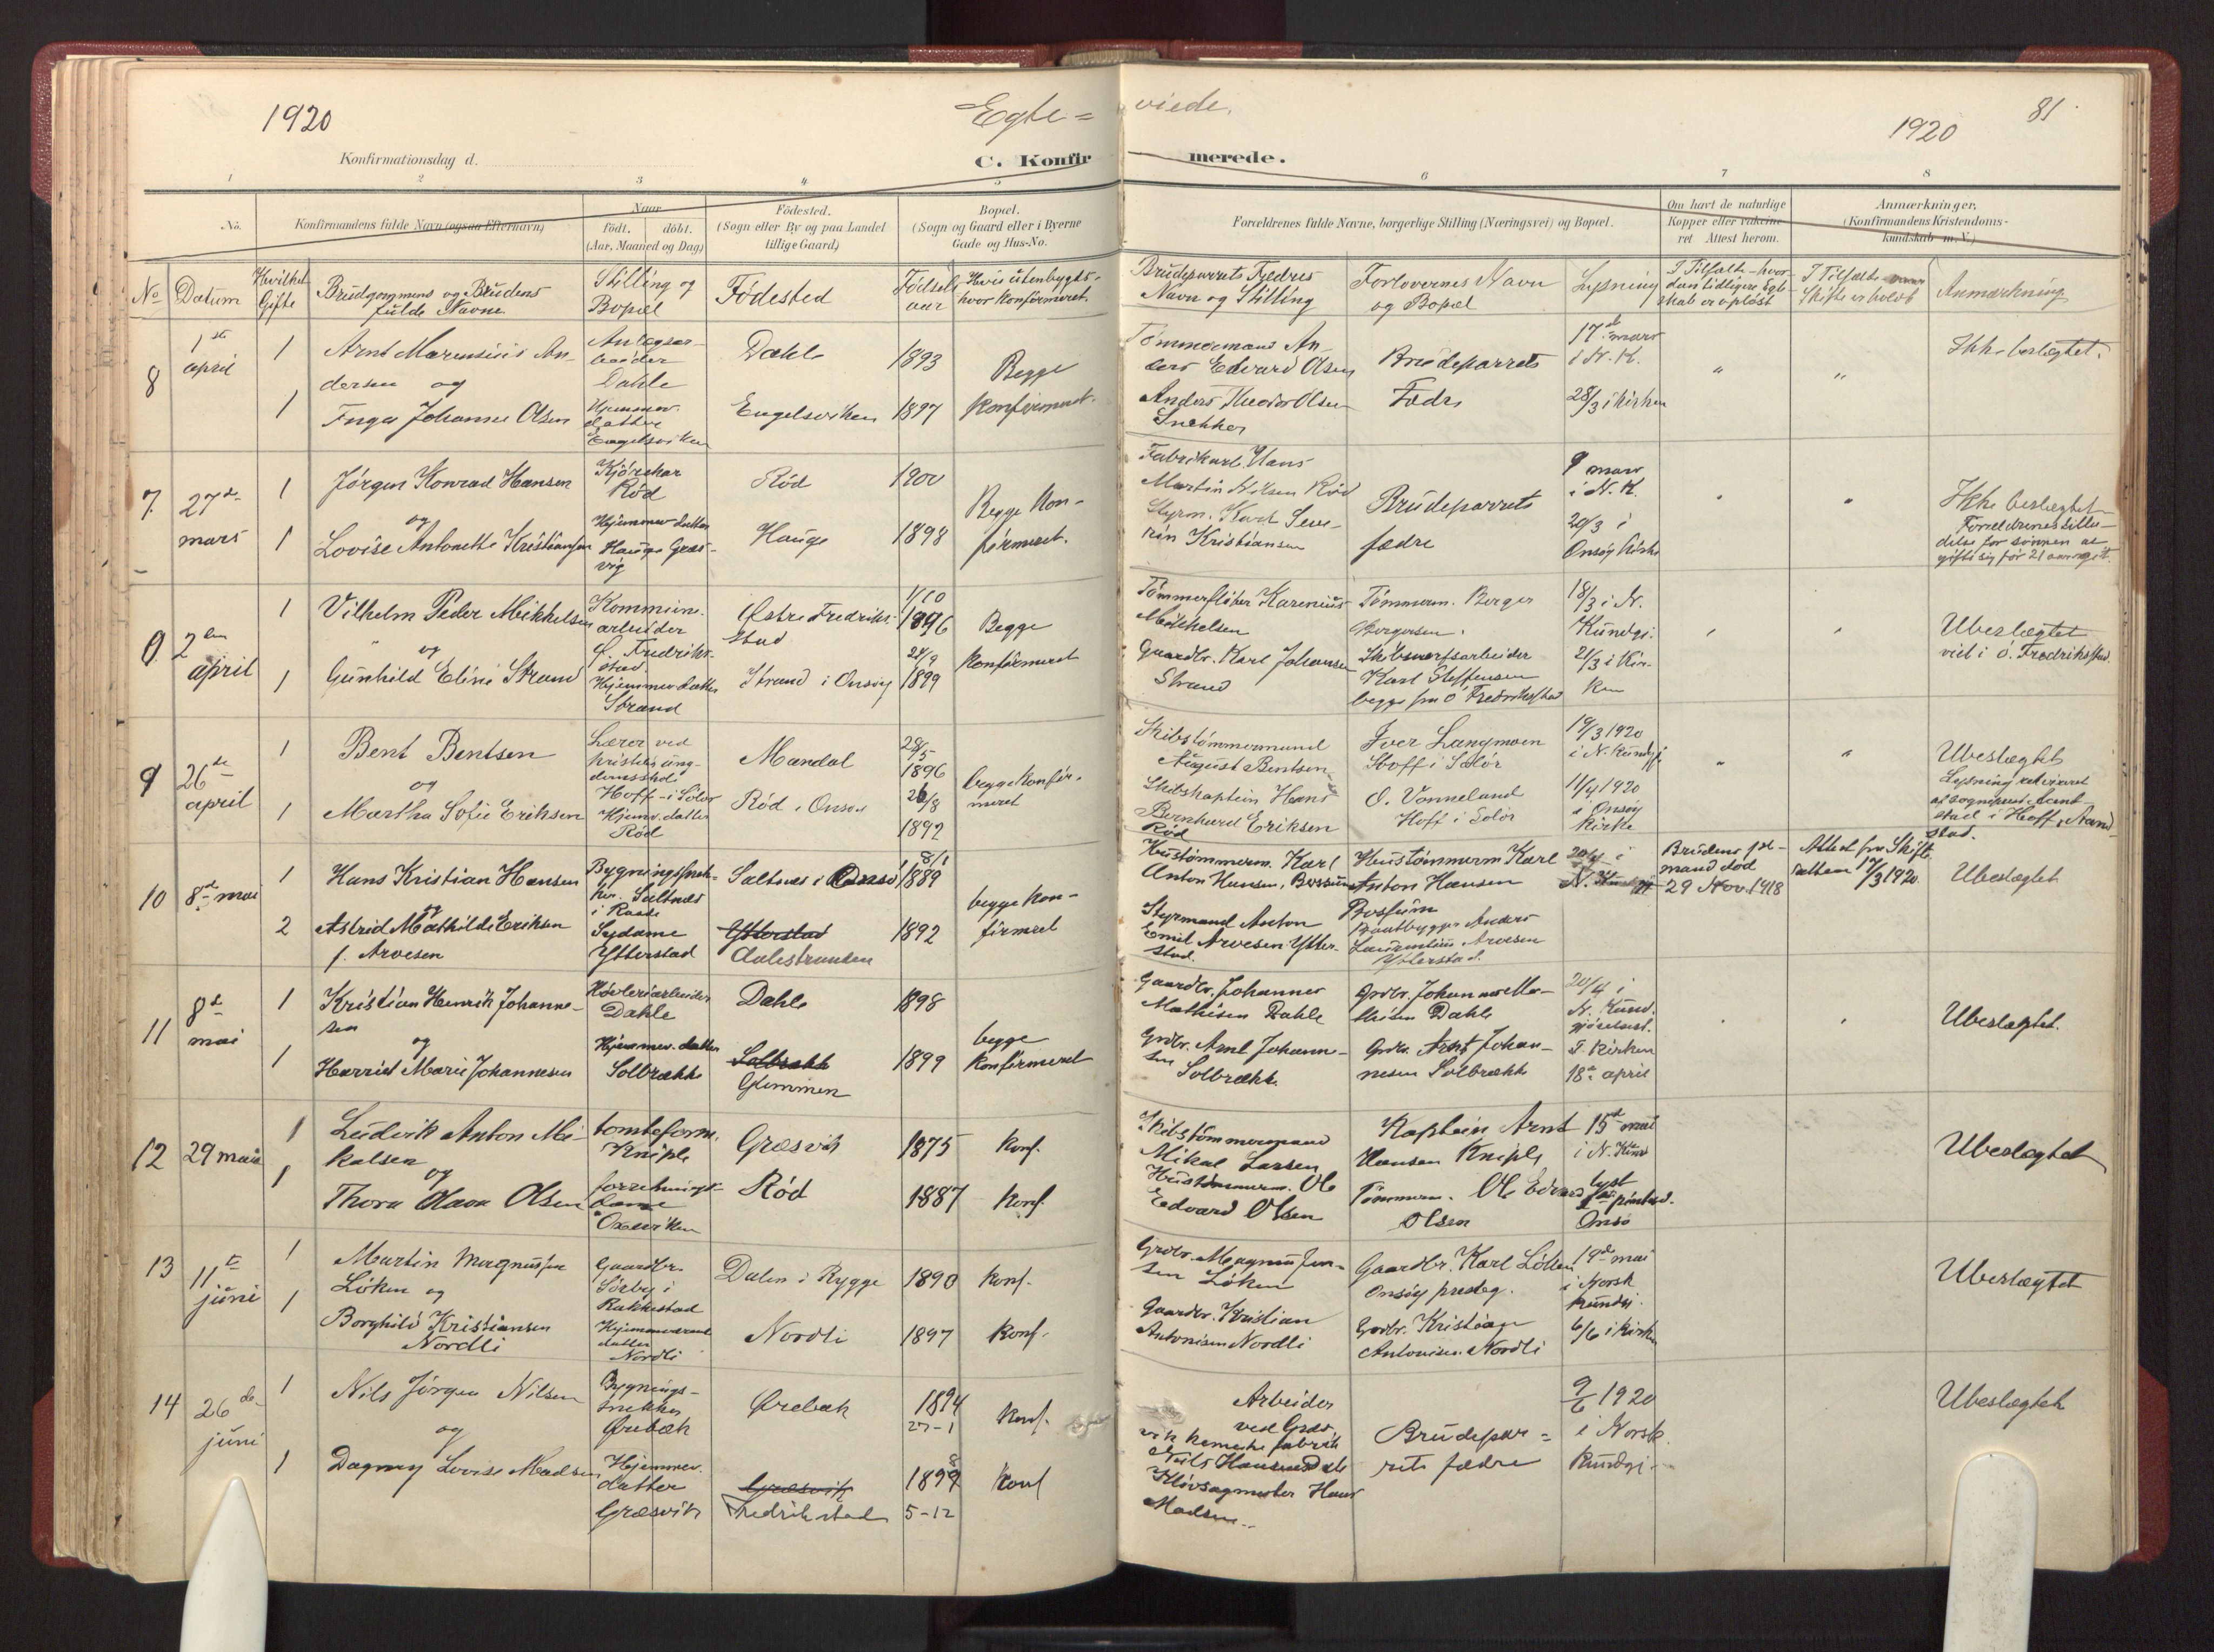 1920
Egte=
viede.
1920
81
Konfirmationsdag d.
C. Konfir
merede.
1 2 3 4 5 6 7 8
No.
Konfirmandens fulde Navn (ogsaa Efternavn)
Naar
født. døbt.
(Aar, Maaned og Dag)
Födested.
(Sogn eller By og paa Landet
tillige Gaard)
Bopæl.
(Sogn og Gaard eller i Byerne
Gade og Hus-No.
Forældrenes fulde Navne, borgerlige Stilling (Næringsvei) og Bopæl.
Om havt de naturlige
Kopper eller vakcine-
ret Attest herom.
Anmærkninger,
(Konfirmandens Kristendoms-
kundskab m. V.)
No
Datum
Hvilket
Gifte
Brudgommens og Brudens
fulde Navne
Stilling og
Bopæl
Födested
Födsels
aar
Hvis utenbygds-
hvor konfirmeret
Brudeparrets Fædres
Navn og Stilling
Forlovernes Navn
og Bopæl
Lysning
I Tilfælde - hvor-
dan tidligere Egte-
skab er oplöst
I Tilfælde
Skifte er holdt
Anmærkning
8
1ste
april
1
Arnt Marensius An-
dersen og
1
Inga Johanne Olsen
Anlægsar-
beider
Dahle
Hjemmev.
datter
Engelsviken
Dahle
Engelsviken
1893
1897
Begge
konfirmeret.
Tömmermand An-
ders Edvard Olsen
Anders Theodor Olsen
Snekker
Brudeparrets
Fedre
17de mars
i N. K.
28/3 i kirken
"
"
Ikke beslegtet.
7
27de
mars
1
Jörgen Konrad Hansen
og
1
Lovise Antonette Kristiansen
Kjörekar
Röd
Hjemmev datter
Hauge Græs-
vig
Röd
Hauge
1900
1898
Begge kon-
firmeret.
Fabrikarb. Hans
Martin Nilsen Röd
Styrm. Karl Seve-
rin Kristiansen
Brudeparrets
fædre
9 mars
i N. K.
20/3 i
Onsöy Kirke
Ikke beslegtet
Forældrenes tilla-
delse for sönnen at
gifte sig för 21 aar
2den
april
1
Vilhelm Peder Mikkelsen
og
1
Gunhild Eline Strand
Kommune-
arbeider
Ö. Fredrik-
stad
Hjemmev datter
Strand
Östre Fredrik-
stad
Strand i Onsöy
1/10
1896
24/9
1899
Begge
konfirmeret
Tömmerflöter Karenius
Mikkelsen
Gaardbr. Karl Johansen
Strand
Tömmerm. Berger
Bergersen.
Skibsverfsarbeider
Karl Steffensen
begge fra Ö Fredrikstad
18/3 i N.
Kundgj.
21/3 i Kir-
ken
Ubeslegtet
viet i Ö. Fredrikstad.
9
26de
april
1
Bent Bentsen
og
1
Martha Sofie Eriksen
Lærer ved
kristelig ung-
domsskole
Hoff - i Solör
Hjemv. datter
Röd
Mandal
Röd i Onsöy
28/5
1896
26/8
1892
begge konfir-
meret
Skibstömmermand
August Bentsen
Skibskaptein Hans
Bernhard Eriksen
Röd
Iver Langmoen
Hoff i Solör
O. Vonneland
Hoff i Solör
19/3 1920
i N. Kundgj
11/4 1920
i Onsöy
Kirke
"
"
Ubeslegtet
Lysning
stad i Hoff
10
8de mai
1
Hans Kristian Hansen
og
2
Astrid Mathilde Eriksen
f. Arvesen
Bygningssnek-
ker. Saltnæs
i Raade
Sydame
Ytterstad
Saltnæs i
Ytterstad
Aalestranden
8/1
1889
1892
begge kon-
firmeret
Hustömmerm. Karl
Anton Hansen,
Styrmand Anton
Emil Arvesen Ytter-
stad.
Hustömmerm Karl
Anton Hansen
Baatbygger Anders
Laurentius Arvesen
Ytterstad.
20/4 i
Brudens 1ste
mand död
29 Nov. 1918
Attest fra Skifte
retten 17/3 1920.
Ubeslegtet
11
8de
mai
1
Kristian Henrik Johanne-
sen
og
1
Harriet Marie Johannesen
Hövleriarbeider
Dahle
Hjemmev. datter
Solbrække
Dahle
Solbrække
Glemmen
1898
1899
begge
konfirmeret
Gaardbr. Johannes
Mathisen Dahle
Grdbr. Arnt Johanne-
sen
Solbrække
Grdbr. Johannes Ma-
thisen Dahle
Grdbr. Arnt Johan-
nesen Solbrække
20/4 i
N. Kund-
gjörelsest.
I. Kirken
18de april
Ubeslegtet.
12
29 mai
1
Ludvik Anton Mi-
kalsen
og
1
Thora Olava Olsen
tomteform.
Kniple
forretnings-
dame
Oxeviken
Græsvik
Röd
1875
1887
Konf.
Konf.
Skibstömmermand
Mikal Larsen
Hustömmerm. Ole
Edvard Olsen
Kaptein Arnt
Hansen Kniple
Tömmerm. Ole Edvard
Olsen
15de mai
i N. Kund
lyst
Onsö
Ubeslegtet
13
11te
juni
1
Martin Magnussen
Löken og
1
Borghild Kristiansen
Nordli
Gaardbr.
Sörby i
Rakkestad
Hjemmeværende
datter
Nordli
Dalen i Rygge
Nordli
1890
1897
Konf.
Konf.
Grdbr. Magnus Jen-
sen Löken
Gaardbr. Kristian
Antonisen Nordli
Gaardbr. Karl Löken
Onsöy presteg.
Grdbr. Kristian
Antonisen Nordli
19de mai
i Norsk
kundgj.
6/6 i kirken
Ubeslegtet
14
26de
juni
1
Nils Jörgen Nilsen
og
1
Dagny Lovise Madsen
Bygnings-
snekker
Örebæk
Hjemmev.
datter
Græsvik
Örebæk
Græsvik
Fredrikstad
1894
27-1
1898
5-12
Konf.
Konf
Arbeider
ved Græs-
vik kemiske fabrik
Nils Hansen
Hövsagmester Hans
Madsen
Brudepar=
rets fædre
9/6 1920
i Norsk.
Kundgj.
Ubeslegtet